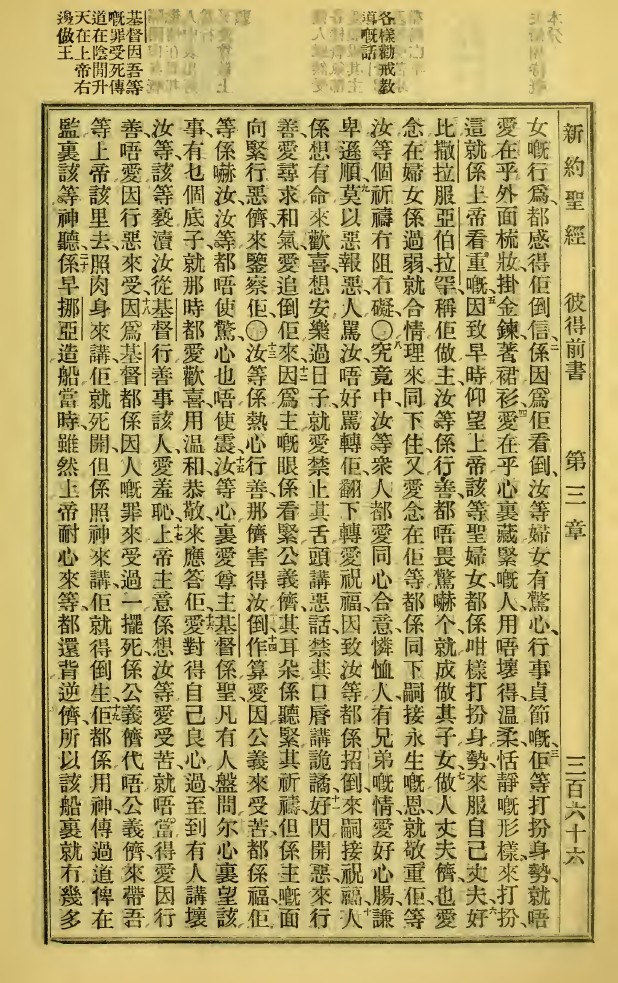 新約聖經 彼得前書 第三章 三百六十六
各樣勸戒教
導嘅話
基督因吾等
嘅罪受死傳
道在陰間升
天在上帝右
邊做王
女嘅行爲、都感得佢倒信、二係因爲佢看倒、汝等婦女有驚心、行事貞節嘅、三佢等打扮身勢、就唔
愛在乎外面梳妝、掛金鍊、著裙衫、四愛在乎心裏藏緊嘅人、用唔壞得溫柔、恬靜嘅形樣來打扮、
這就係上帝看重嘅、五因致早時仰望上帝該等聖婦女、都係咁樣打扮身勢、來服自己丈夫、六好
比撒拉服亞伯拉罕、稱佢做主、汝等係行善、都唔畏驚嚇个、就成做其子女、七做人丈夫儕、也愛
念在婦女係過弱、就合情理來同下住、又愛念在佢等都係同下嗣接永生嘅恩、就敬重佢等、
汝等個祈禱冇阻冇礙、〇八究竟中汝等衆人都愛同心合意、憐恤人、有兄弟嘅情愛、好心腸、謙
卑遜順、九莫以惡報惡、人罵汝唔好罵轉佢、翻下轉愛祝福、因致汝等都係招倒來嗣接祝福、十人
係想有命來歡喜、想安樂過日子、就愛禁止其舌頭講惡話、禁其口唇講詭譎、十一好閃開惡來行
善、愛尋求和氣、愛追倒佢來、十二因爲主嘅眼係看緊公義儕、其耳朶係聽緊其祈禱、但係主嘅面
向緊行惡儕、來鑒察佢、〇十三汝等係熱心行善、那儕害得汝倒、十四作算愛因公義來受苦、都係福、佢
等係嚇汝、汝等都唔使驚心、也唔使震、十五汝等心裏愛尊主基督係聖、凡有人盤問尔心裏望該
事有乜個底子、就那時都愛歡喜、用温和恭敬來應答佢、十六愛對得自己良心過、至到有人講壞
汝等、該等褻瀆汝從基督行善事該人、愛羞恥、十七上帝主意係想汝等愛受苦、就唔當得愛因行
善、唔愛因行惡來受、十八因爲基督都係因人嘅罪來受過一擺死、係公義儕代唔公義儕、來帶吾
等上帝該里去、照肉身來講、佢就死開、但係照神來講、佢就得倒生、十九佢都係用神傳過道俾在
監裏該等神聽、二十係早挪亞造船當時、雖然上帝耐心來等、都還背逆儕、所以該船裏就冇幾多